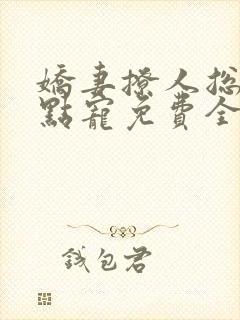 嬌妻撩人總
點寵免費全
錢包君